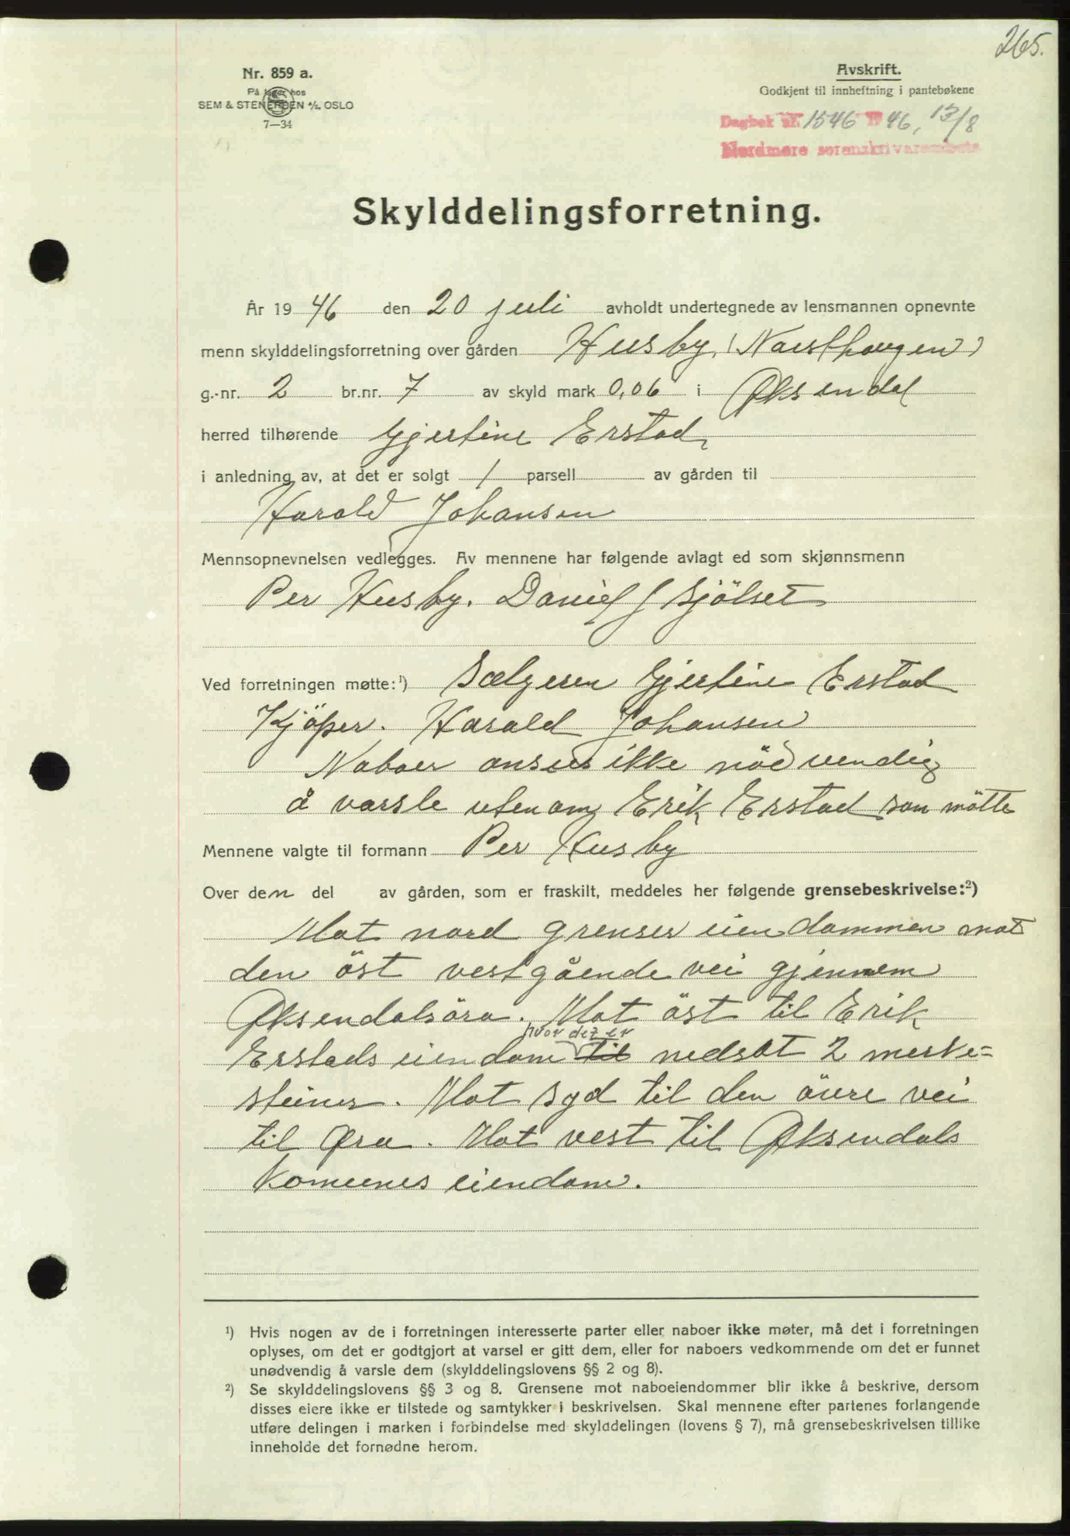 265.
Nr. 859 a.
På lager hos
SEM & STENERSEN A/S, OSLO
7—34
Avskrift.
Godkjent til innheftning i pantebøkene
Dagbok nr. 1546 1946, 13/8
Nordmøre sorenskrivarembete
Skylddelingsforretning.
År 1946 den 20 juli avholdt undertegnede av lensmannen opnevnte
menn skylddelingsforretning over gården Husby, (Nausthaugen)
g.-nr. 2 br.nr. 7 av skyld mark 0,06 i Øksendal
herred tilhørende Gjertine Erstad,
i anledning av, at det er solgt 1 parsell av gården til
Harald Johansen
Mennsopnevnelsen vedlegges. Av mennene har følgende avlagt ed som skjønnsmenn
Per Husby. Daniel J Sjölset
Ved forretningen møtte:¹) Sælgeren Gjertine Erstad
Kjöper. Harald Johansen
Naboer anses ikke nödvendig
å varsle utenom Erik Erstad som mötte
Mennene valgte til formann Per Husby
Over den del av gården, som er fraskilt, meddeles her følgende grensebeskrivelse:²)
Mot nord grenser eiendommen mot
den öst vestgående vei gjennem
Øksendalsöra. Mot öst til Erik
hvor det er
Erstads eiendom til nedsat 2 merke=
steiner. Mot syd til den övre vei
til Øra. Mot vest til Øksendals
Komunes eiendom.
¹) Hvis nogen av de i forretningen interesserte parter eller naboer ikke møter, må det i forretningen
oplyses, om det er godtgjort at varsel er gitt dem, eller for naboers vedkommende om det er funnet
unødvendig å varsle dem (skylddelingslovens §§ 2 og 8).
²) Se skylddelingslovens §§ 3 og 8. Grensene mot naboeiendommer blir ikke å beskrive, dersom
disses eiere ikke er tilstede og samtykker i beskrivelsen. Skal mennene efter partenes forlangende
utføre delingen i marken i forbindelse med skylddelingen (lovens § 7), må grensebeskrivelsen tillike
inneholde det fornødne herom.